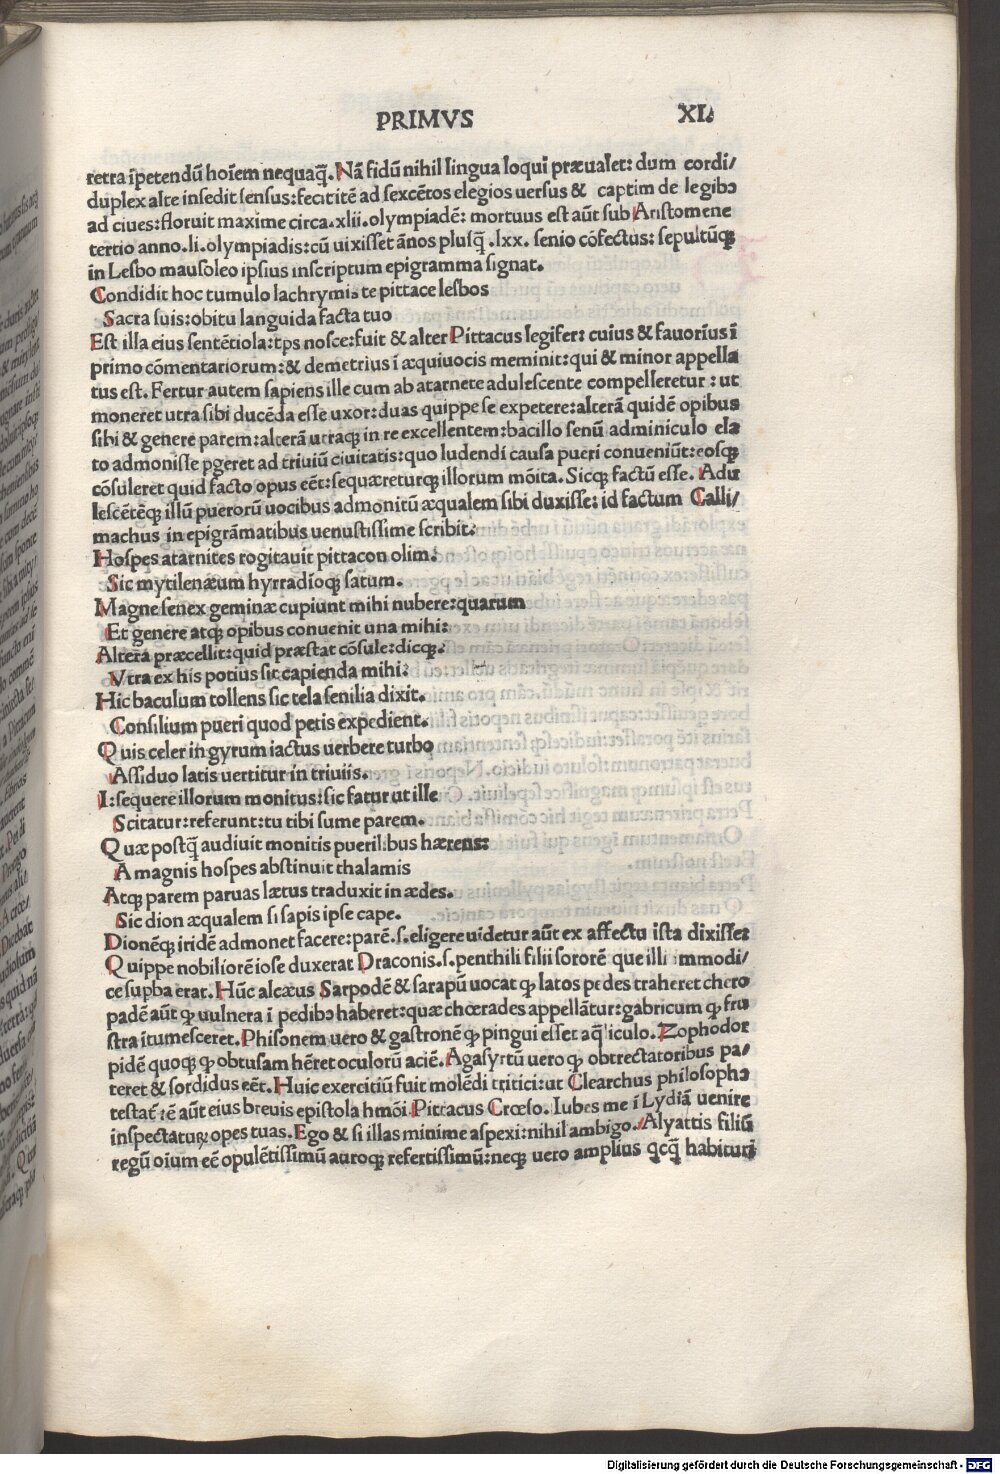 PRIMVS XI.
retra ĩpetendũ hoĩem nequaq̃. Nã fidũ nihil lingua loqui præualet: dum cordi/
duplex alte insedit sensus: fecit itẽ ad sexcẽtos elegios uersus & captim de legibꝫ
ad ciues: floruit maxime circa .xlii. olympiadẽ: mortuus est aũt sub Aristomene
tertio anno .li. olympiadis: cũ uixisset ãnos plusq̃ .lxx. senio cõfectus: sepultũqꝫ
in Lesbo mausoleo ipsius inscriptum epigramma signat.
Condidit hoc tumulo lachrymis te pittace lesbos
Sacra suis: obitu languida facta tuo
Est illa eius sentẽtiola: tp̃s nosce: fuit & alter Pittacus legifer: cuius & fauorĩus ĩ
primo cõmentariorum: & demetrius ĩ æquiuocis meminit: qui & minor appella
tus est. Fertur autem sapiens ille cum ab atarnete adulescente compelleretur: ut
moneret utra sibi ducẽda esse uxor: duas quippe se expetere: alterã quidẽ opibus
sibi & genere parem: alterã utraqꝫ in re excellentem: bacillo senũ adminiculo ela
to admonisse pgeret ad triuiũ ciuitatis: quo ludendi causa pueri conueniũt: eosqꝫ
cõsuleret quid facto opus eẽt: sequæreturqꝫ illorum mõita. Sicqꝫ factũ esse. Adu
lescẽtẽqꝫ illũ puerorũ uocibus admonitũ æqualem sibi duxisse: id factum Calli/
machus in epigrãmatibus uenustissime scribit:
Hospes atarnites rogitauit pittacon olim:
Sic mytilenæum hyrradioqꝫ satum.
Magne senex geminæ cupiunt mihi nubere: quarum
Et genere atqꝫ opibus conuenit una mihi:
Altera præcellit: quid præstat cõsule: dicqꝫ:
Vtra ex his potius sic capienda mihi:
Hic baculum tollens sic tela senilia dixit.
Consilium pueri quod petis expedient.
Quis celer in gyrum iactus uerbere turbo
Assiduo latis uertitur in triuiis.
I: sequere illorum monitus: sic fatur ut ille
Scitatur: referunt: tu tibi sume parem.
Quæ postq̃ audiuit monitis puerilibus hærens:
A magnis hospes abstinuit thalamis
Atqꝫ parem paruas lætus traduxit in ædes.
Sic dion æqualem si sapis ipse cape.
Dionẽqꝫ iridẽ admonet facere: parẽ .s. eligere uidetur aũt ex affectu ista dixisse:
Quippe nobiliorẽ iose duxerat Draconis .s. penthili filii sororẽ que illi immodi/
ce supba erat. Hũc alcæus Sarpodẽ & sarapũ uocat ꝙ latos pedes traheret chero
padẽ aũt ꝙ uulnera ĩ pedibꝫ haberet: quæ chœrades appellãtur: gabricum ꝙ fru
stra ĩtumesceret. Phisonem uero & gastronẽ ꝙ pingui esset aq̃liculo. Zophodor
pidẽ quoqꝫ ꝙ obtusam hẽret oculorũ aciẽ. Agasyrtũ uero ꝙ obtrectatoribus pa/
teret & sordidus eẽt. Huic exercitiũ fuit molẽdi tritici: ut Clearchus philosophꝫ
testat̃: ẽ aũt eius breuis epistola hmõi. Pittacus Crœso. Iubes me ĩ Lydiã uenire
inspectaturꝫ opes tuas. Ego & si illas minime aspexi: nihil ambigo. Alyattis filiũ
regũ oĩum eẽ opulẽtissimũ auroqꝫ refertissimũ: neqꝫ uero amplius qcq̃ habituri
Digitalisierung gefördert durch die Deutsche Forschungsgemeinschaft - DFG